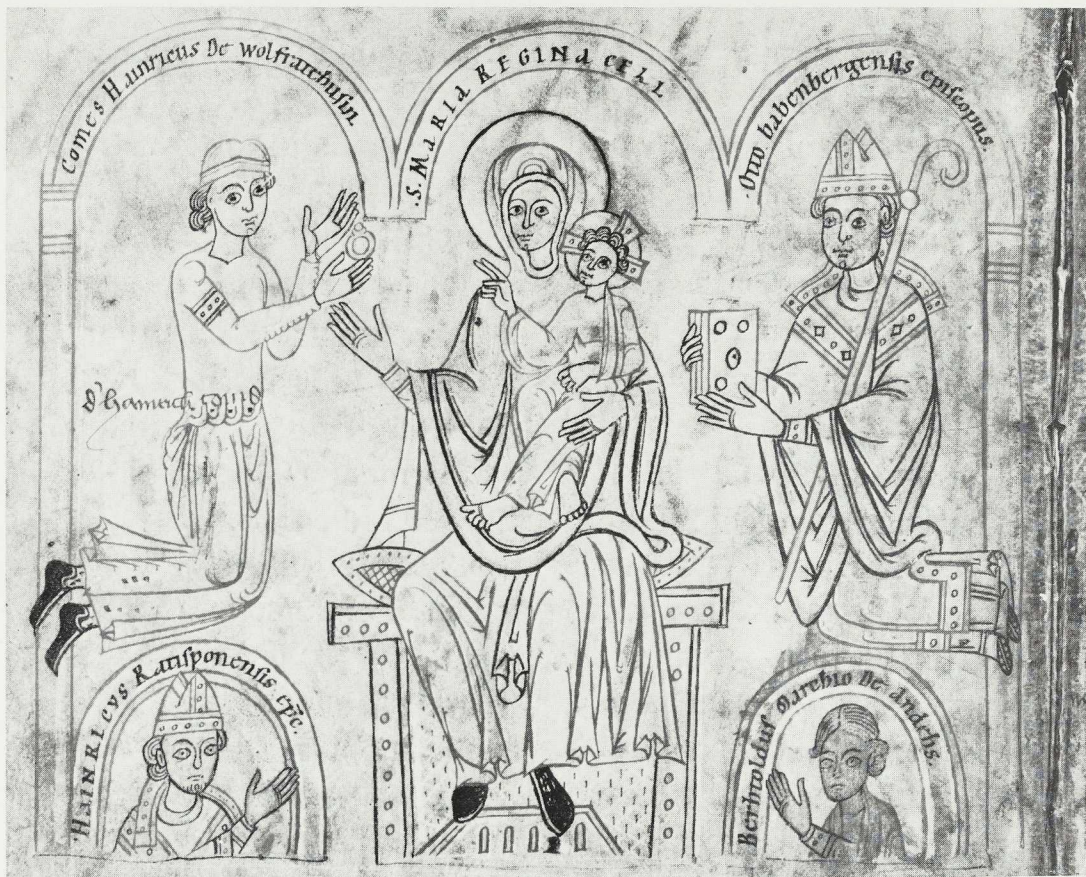 Comes Hainricus De wolfratehusin.
.S. MARIA REGINA CELI
Otto babenbergensis episcopus.
HAINRICVS Ratisponensis ep̄c.
Berhtoldus Marchio De andehs.